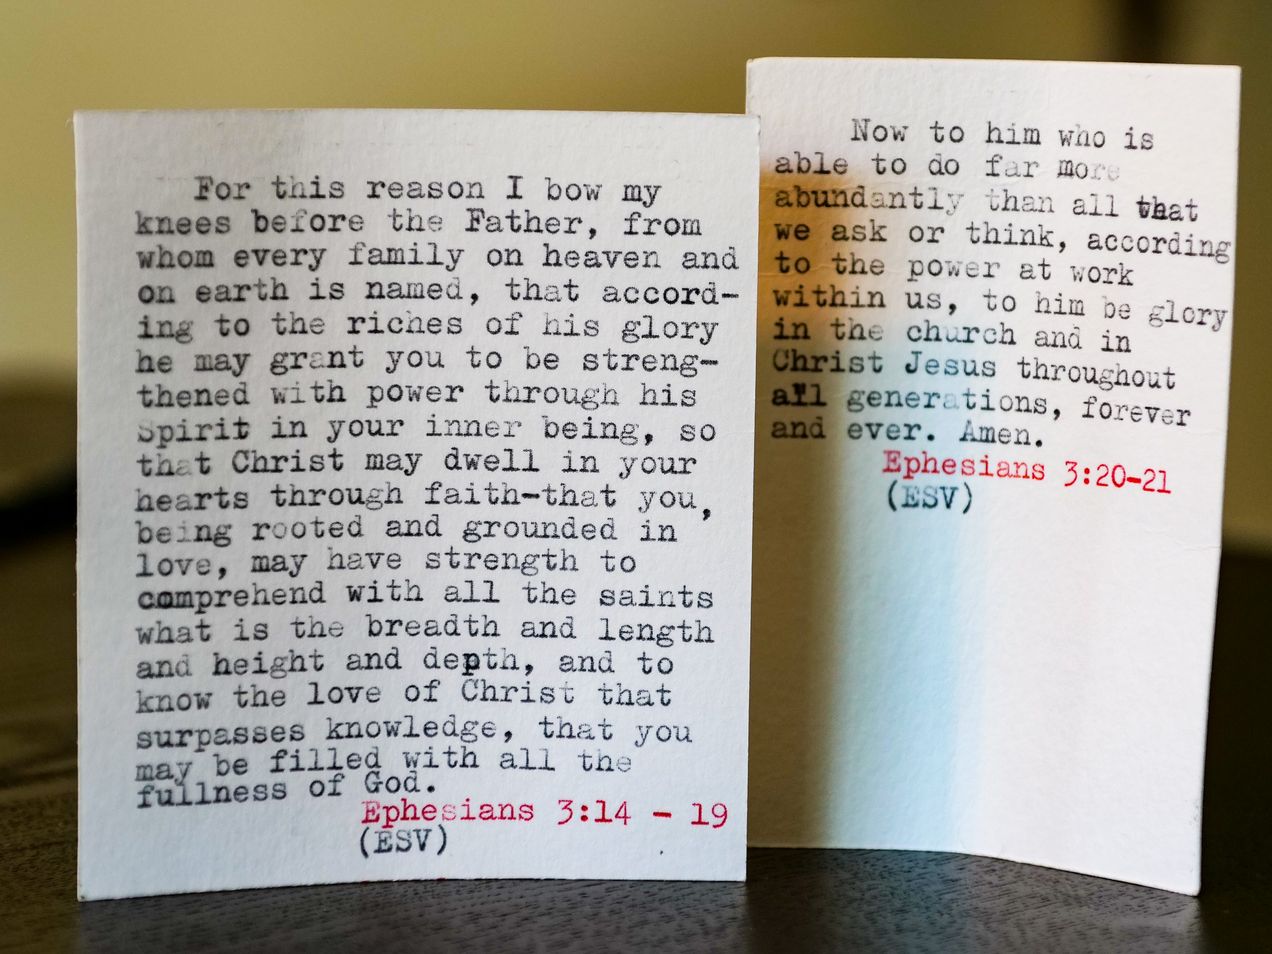 For this reason I bow my
knees before the Father, from
whom every family on heaven and
on earth is named, that accord-
ing to the riches of his glory
he may grant you to be streng-
thened with power through his
Spirit in your inner being, so
that Christ may dwell in your
hearts through faith-that you,
being rooted and grounded in
love, may have strength to
comprehend with all the saints
what is the breadth and length
and height and depth, and to
know the love of Christ that
surpasses knowledge, that you
may be filled with all the
fullness of God.
Ephesians 3:14 - 19
(ESV)
Now to him who is
able to do far more
abundantly than all that
we ask or think, according
to the power at work
within us, to him be glory
in the church and in
Christ Jesus throughout
all generations, forever
and ever. Amen.
Ephesians 3:20-21
(ESV)